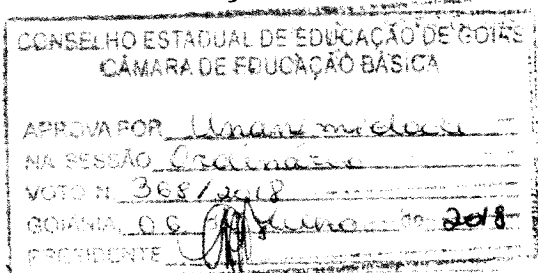 CONSELHO ESTADUAL DE EDUCAÇÃO DE GOIÁS
CÂMARA DE EDUCAÇÃO BÁSICA
APROVA POR Unanimidade
NA SESSÃO Ordinária
VOTO N. 368/2018
GOIÂNIA, 06 2018
PRESIDENTE